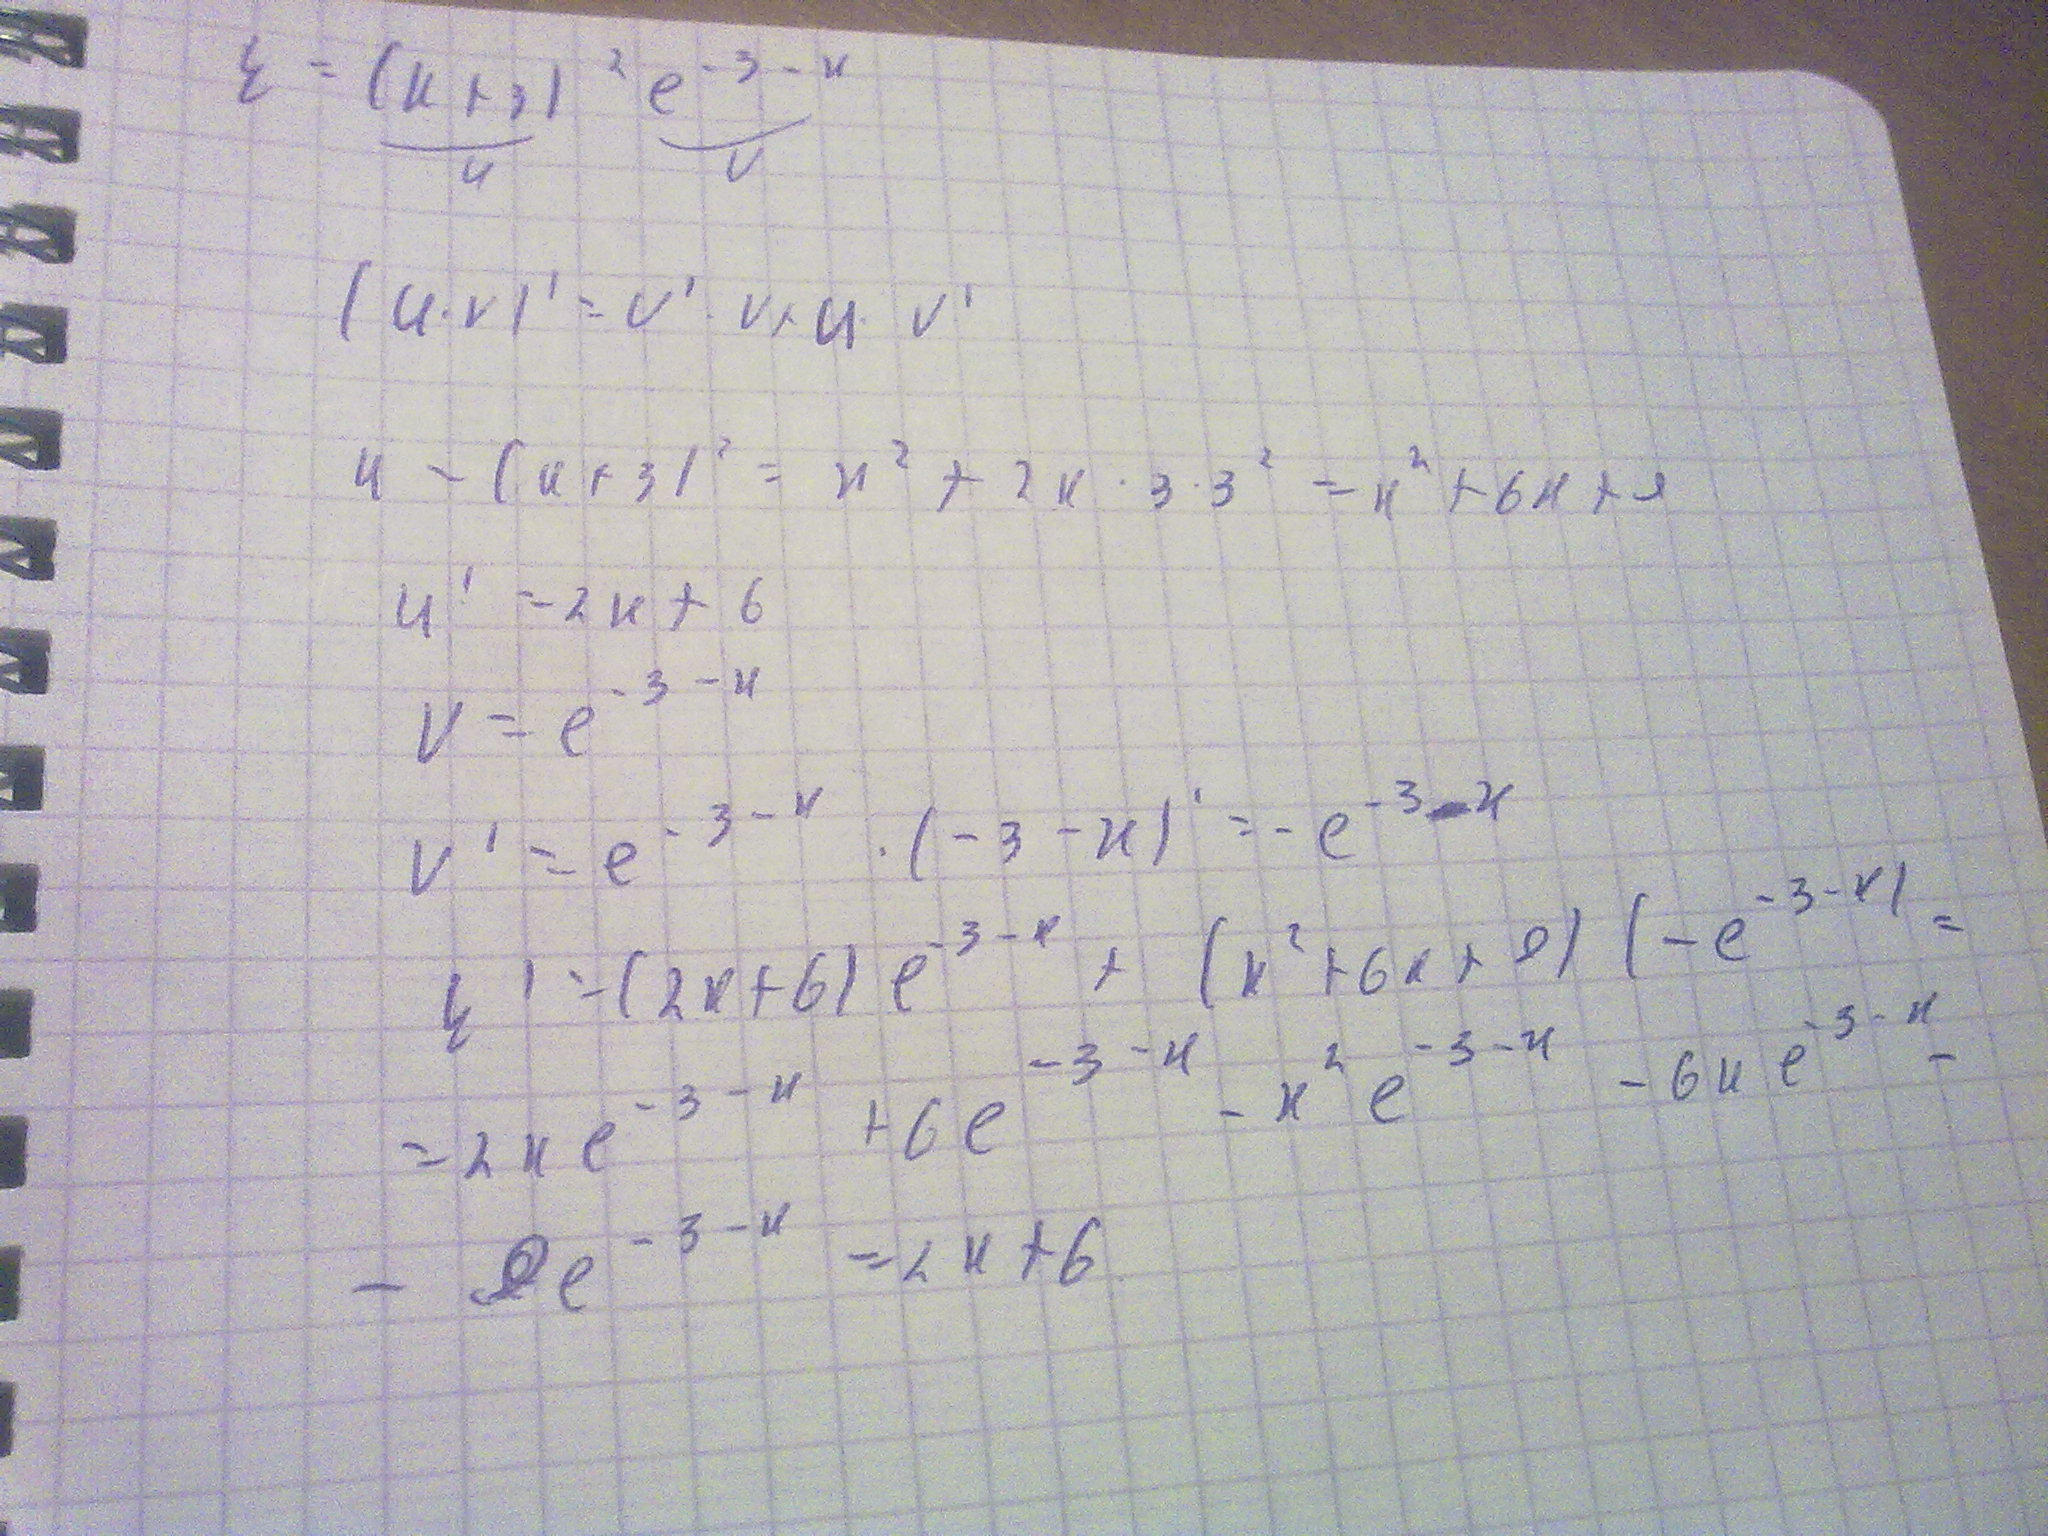 y = (x+3)² e^{-3-x}
u v
(u·v)' = v'·v+u·v'
u - (x+3)² = x² + 2x·3·3² = x²+6x+9
u' = 2x+6
v = e^{-3-x}
v' = e^{-3-x} ·(-3-x)' = -e^{-3-x}
y' = (2x+6) e^{-3-x} + (x²+6x+9) (-e^{-3-x}) =
= 2x e^{-3-x} +6e^{-3-x} - x² e^{-3-x} - 6x e^{-3-x} -
- 9e^{-3-x} = 2x+6